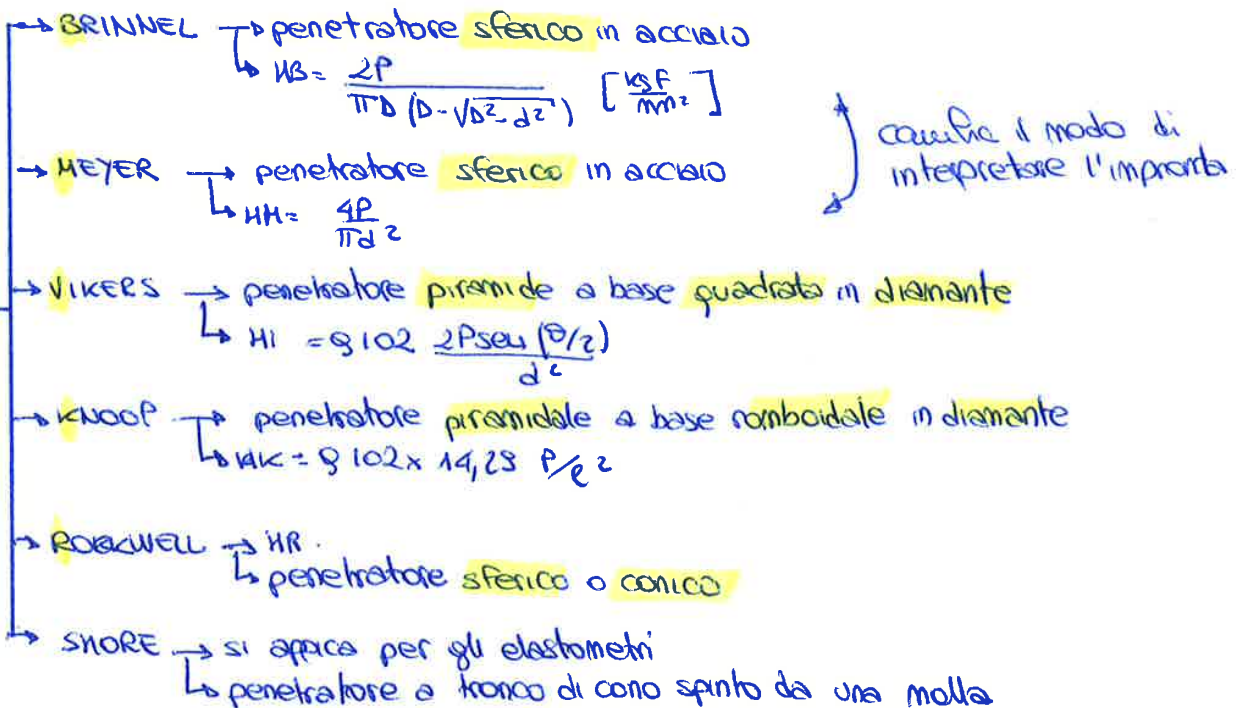 → BRINNEL → penetratore sferico in acciaio
↳ HB = 2P / πD (D-√D²-d²) [kgf/mm²]
cambia il modo di
intepretare l'impronta
→ MEYER → penetratore sferico in acciaio
↳ HM = 4P / πd²
→ VIKERS → penetratore piramide a base quadrata in diamante
↳ HV = 0,102 2Psen(θ/2) / d²
→ KNOOP → penetratore piramidale a base romboidale in diamante
↳ HK = 0,102 x 14,23 P/l²
→ ROCKWELL → HR.
↳ penetratore sferico o conico
→ SHORE → si appica per gli elastometri
↳ penetratore a tronco di cono spinto da una molla